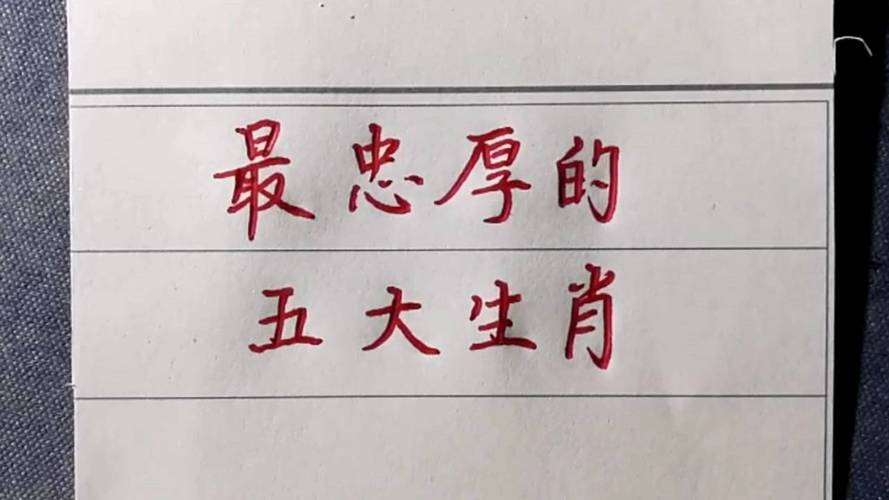 最忠厚的
五大生肖